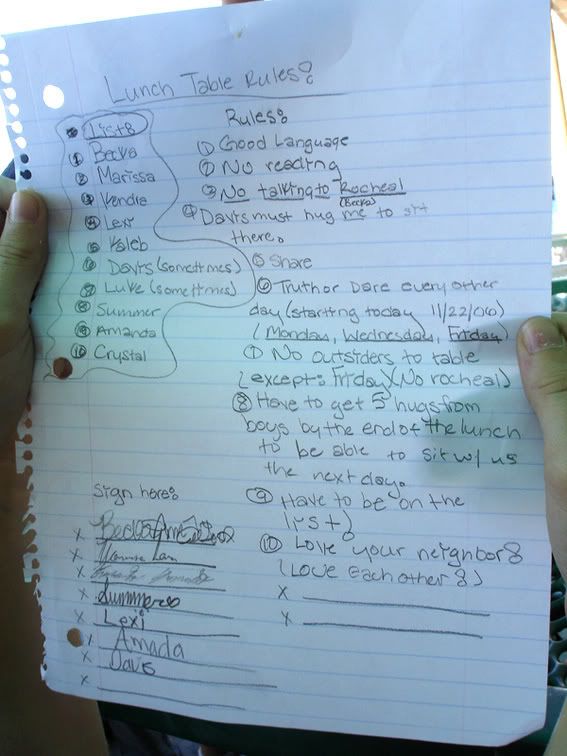 Lunch Table Rules:
List:
① Becka
② Marissa
③ Kendra
④ Lexi
⑤ Kaleb
⑥ Davis (sometimes)
⑦ Luke (sometimes)
⑧ Summer
⑨ Amanda
⑩ Crystal
Rules:
① Good Language
② No reading
③ No talking to Rocheal
④ Davis must hug me to sit
(Becka)
there.
⑤ Share
⑥ Truth or Dare every other
day (starting today 11/22/06)
(Monday, Wednesday, Friday)
⑦ No outsiders to table
(except: Friday)(No rocheal)
⑧ Have to get 5 hugs from
boys by the end of the lunch
to be able to sit w/ us
the next day.
⑨ Have to be on the
list
⑩ Love your neighbor
(Love each other)
x
x
Sign here:
x
x
x
x Summer
x Lexi
x Amada
x Davis
x